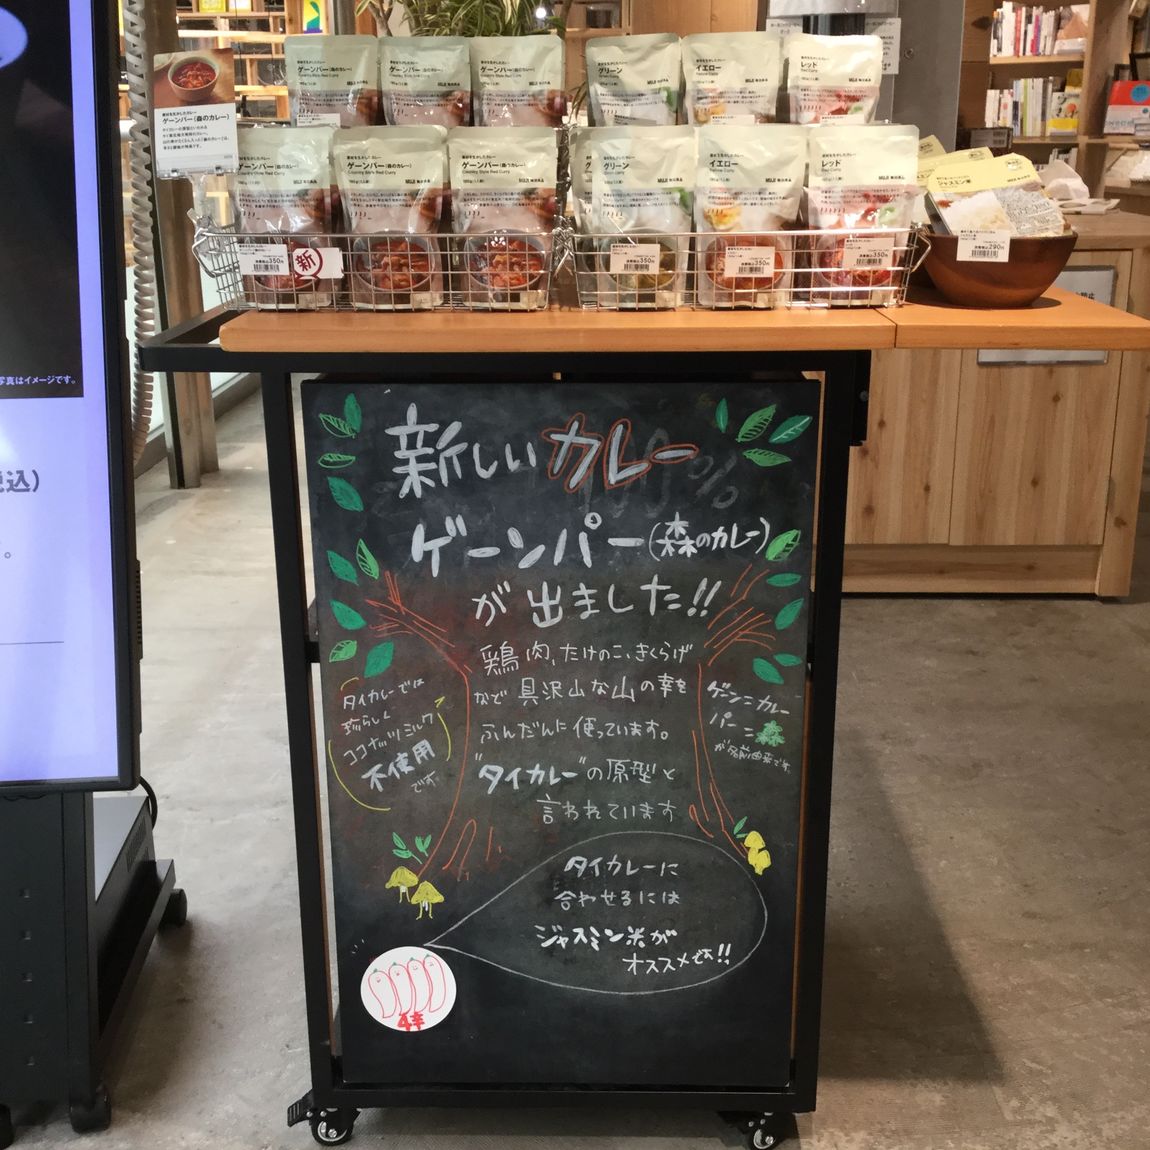 新しいカレー
ゲーンパー(森のカレー)
が出ました!!
鶏肉、たけのこ、きくらげ
など具沢山な山の幸を
ふんだんに使っています。
"タイカレー"の原型と
言われています
タイカレーでは
珍らしく
ココナッツミルク
不使用
です
ゲーン=カレー
パー=森
が名前由来です。
タイカレーに
合わせるには
ジャスミン米が
オススメです!!
4辛
ゲーンパー(森のカレー)
ゲーンパー(森のカレー)
Country Style Red Curry
MUJI 無印良品
グリーン
イエロー
Yellow Curry
レッド
Red Curry
ジャスミン米
新
消費税込350円
消費税込350円
消費税込350円
消費税込350円
消費税込290円
写真はイメージです。
税込)